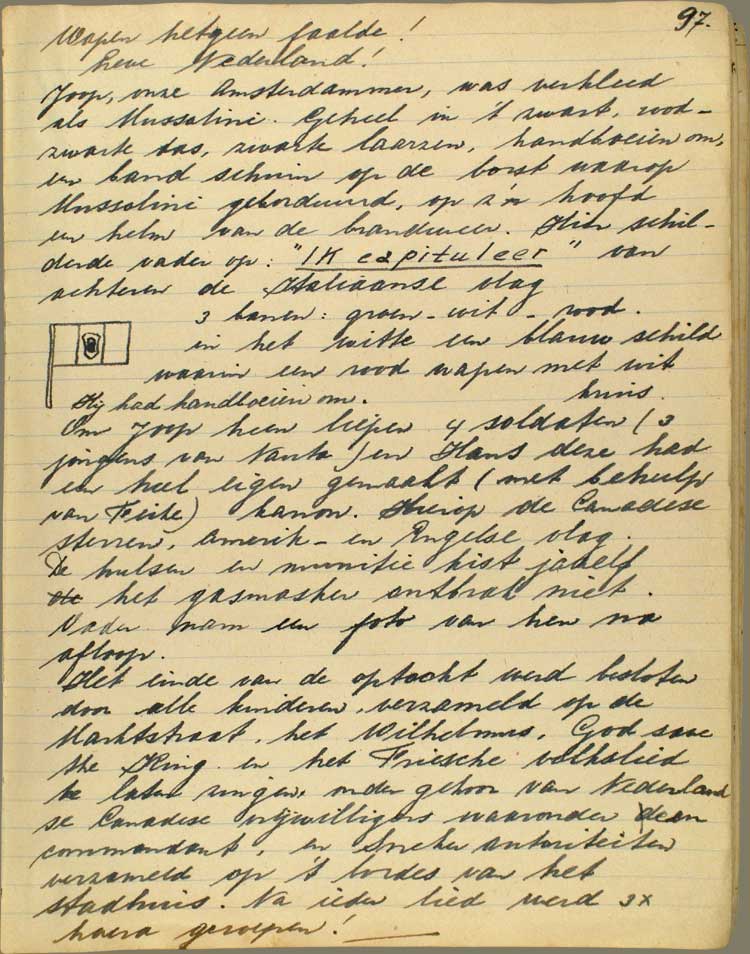 97.
Wapen hetgeen faalde!
Leve Nederland!
Joop, onze Amsterdammer, was verkleed
als Mussolini. Geheel in 't zwart, rood-
zwarte das, zwarte laarzen, handboeien om,
een band schuin op de borst waarop
Mussolini geborduurd, op z'n hoofd
een helm van de brandweer. Hier schil-
derde vader op: "IK capituleer" van
achteren de Italiaanse vlag
3 banen: groen - wit - rood.
in het witte een blauw schild
waarin een rood wapen met wit
kruis.
Hij had handboeien om.
Om Joop heen liepen 4 soldaten (3
jongens van Nauta) en Hans deze had
een heel eigen gemaakt (met behulp
van Feike) kanon. Hierop de Canadese
sterren, Amerik- en Engelse vlag.
De hulsen en munitie kist jazelf
het gasmasker ontbrak niet.
Vader nam een foto van hen na
afloop.
Het einde van de optocht werd besloten
door alle kinderen, verzameld op de
Marktstraat, het Wilhelmus, God save
the King en het Friesche volkslied
te laten zingen, onder gehoor van Nederland
se Canadese vrijwilligers waaronder een
commandant, en Sneker autoriteiten
verzameld op 't bordes van het
stadhuis. Na ieder lied werd 3x
hoera geroepen!